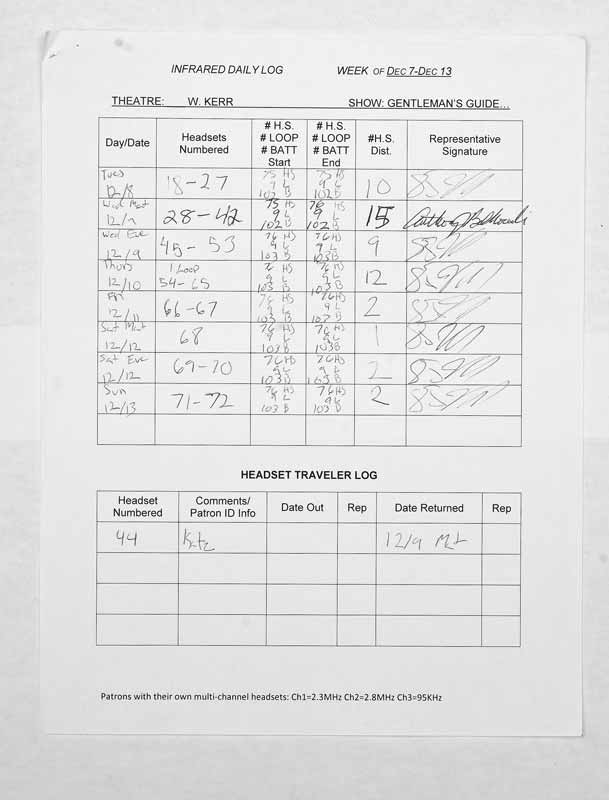 INFRARED DAILY LOG WEEK OF DEC 7-DEC 13
THEATRE: W. KERR SHOW: GENTLEMAN'S GUIDE...
Day/Date
Headsets
Numbered
# H.S.
# LOOP
# BATT
Start
# H.S.
# LOOP
# BATT
End
#H.S.
Dist.
Representative
Signature
Tues
12/8
18-27
75 HS
9 L
102 B
75 HS
9 L
102 B
10
Wed Mat
12/9
28-42
75 HS
9 L
102 B
76 HS
9 L
102 B
15
Wed Eve
12/9
45-53
76 HS
9 L
103 B
76 HS
9 L
103 B
9
Thurs
12/10
1 Loop
54-65
76 HS
9 L
103 B
76 HS
9 L
103 B
12
Fri
12/11
66-67
76 HS
9 L
103 B
76 HS
9 L
103 B
2
Sat Mat
12/12
68
76 HS
9 L
103 B
76 HS
9 L
103 B
1
Sat Eve
12/12
69-70
76 HS
9 L
103 B
76 HS
9 L
103 B
2
Sun
12/13
71-72
76 HS
9 L
103 B
76 HS
9 L
103 B
2
HEADSET TRAVELER LOG
Headset
Numbered
Comments/
Patron ID Info
Date Out
Rep
Date Returned
Rep
44
Katz
12/9 Mat
Patrons with their own multi-channel headsets: Ch1=2.3MHz Ch2=2.8MHz Ch3=95KHz